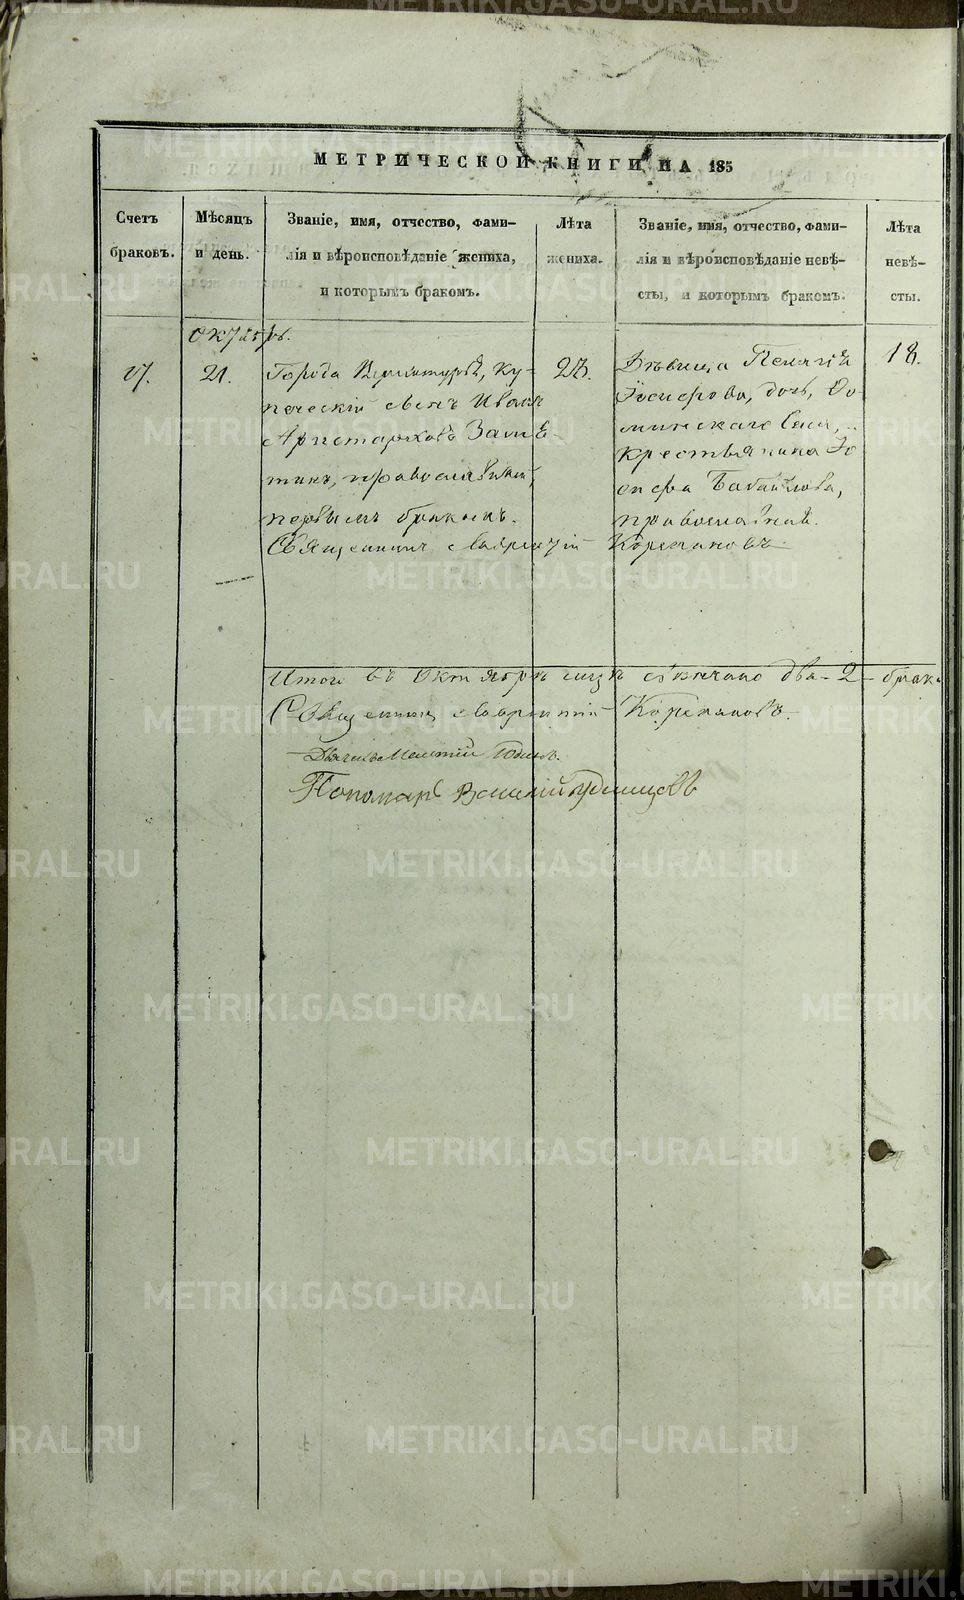 МЕТРИЧЕСКОЙ КНИГИ НА 185
Счетъ браковъ.
Мѣсяцъ и день.
Званіе, имя, отчество, фами-
лія и вѣроисповѣданіе жениха,
и которымъ бракомъ.
Лѣта жениха.
Званіе, имя, отчество, фами-
лія и вѣроисповѣданіе невѣ-
сты, и которымъ бракомъ.
Лѣта невѣ-
сты.
Октябрь.
21.
Города Верхотурья, ку-
печескій сынъ Иванъ
Аристарховъ Замя-
тинъ, православный,
первымъ бракомъ.
Дѣвица Пелагія
Іосифова, дочь, Фо-
минскаго Села,
крестьянина Іо
сифа Бабайлова,
православная.
18.
Священникъ Лаврентій Коряковъ
Итого въ Октябрѣ мцѣ вѣнчано два - 2 - брака
Священникъ Лаврентій Коряковъ.
Дьячекъ
Пономарь Василій Удинцовъ
METRIKI.GASO-URAL.RU